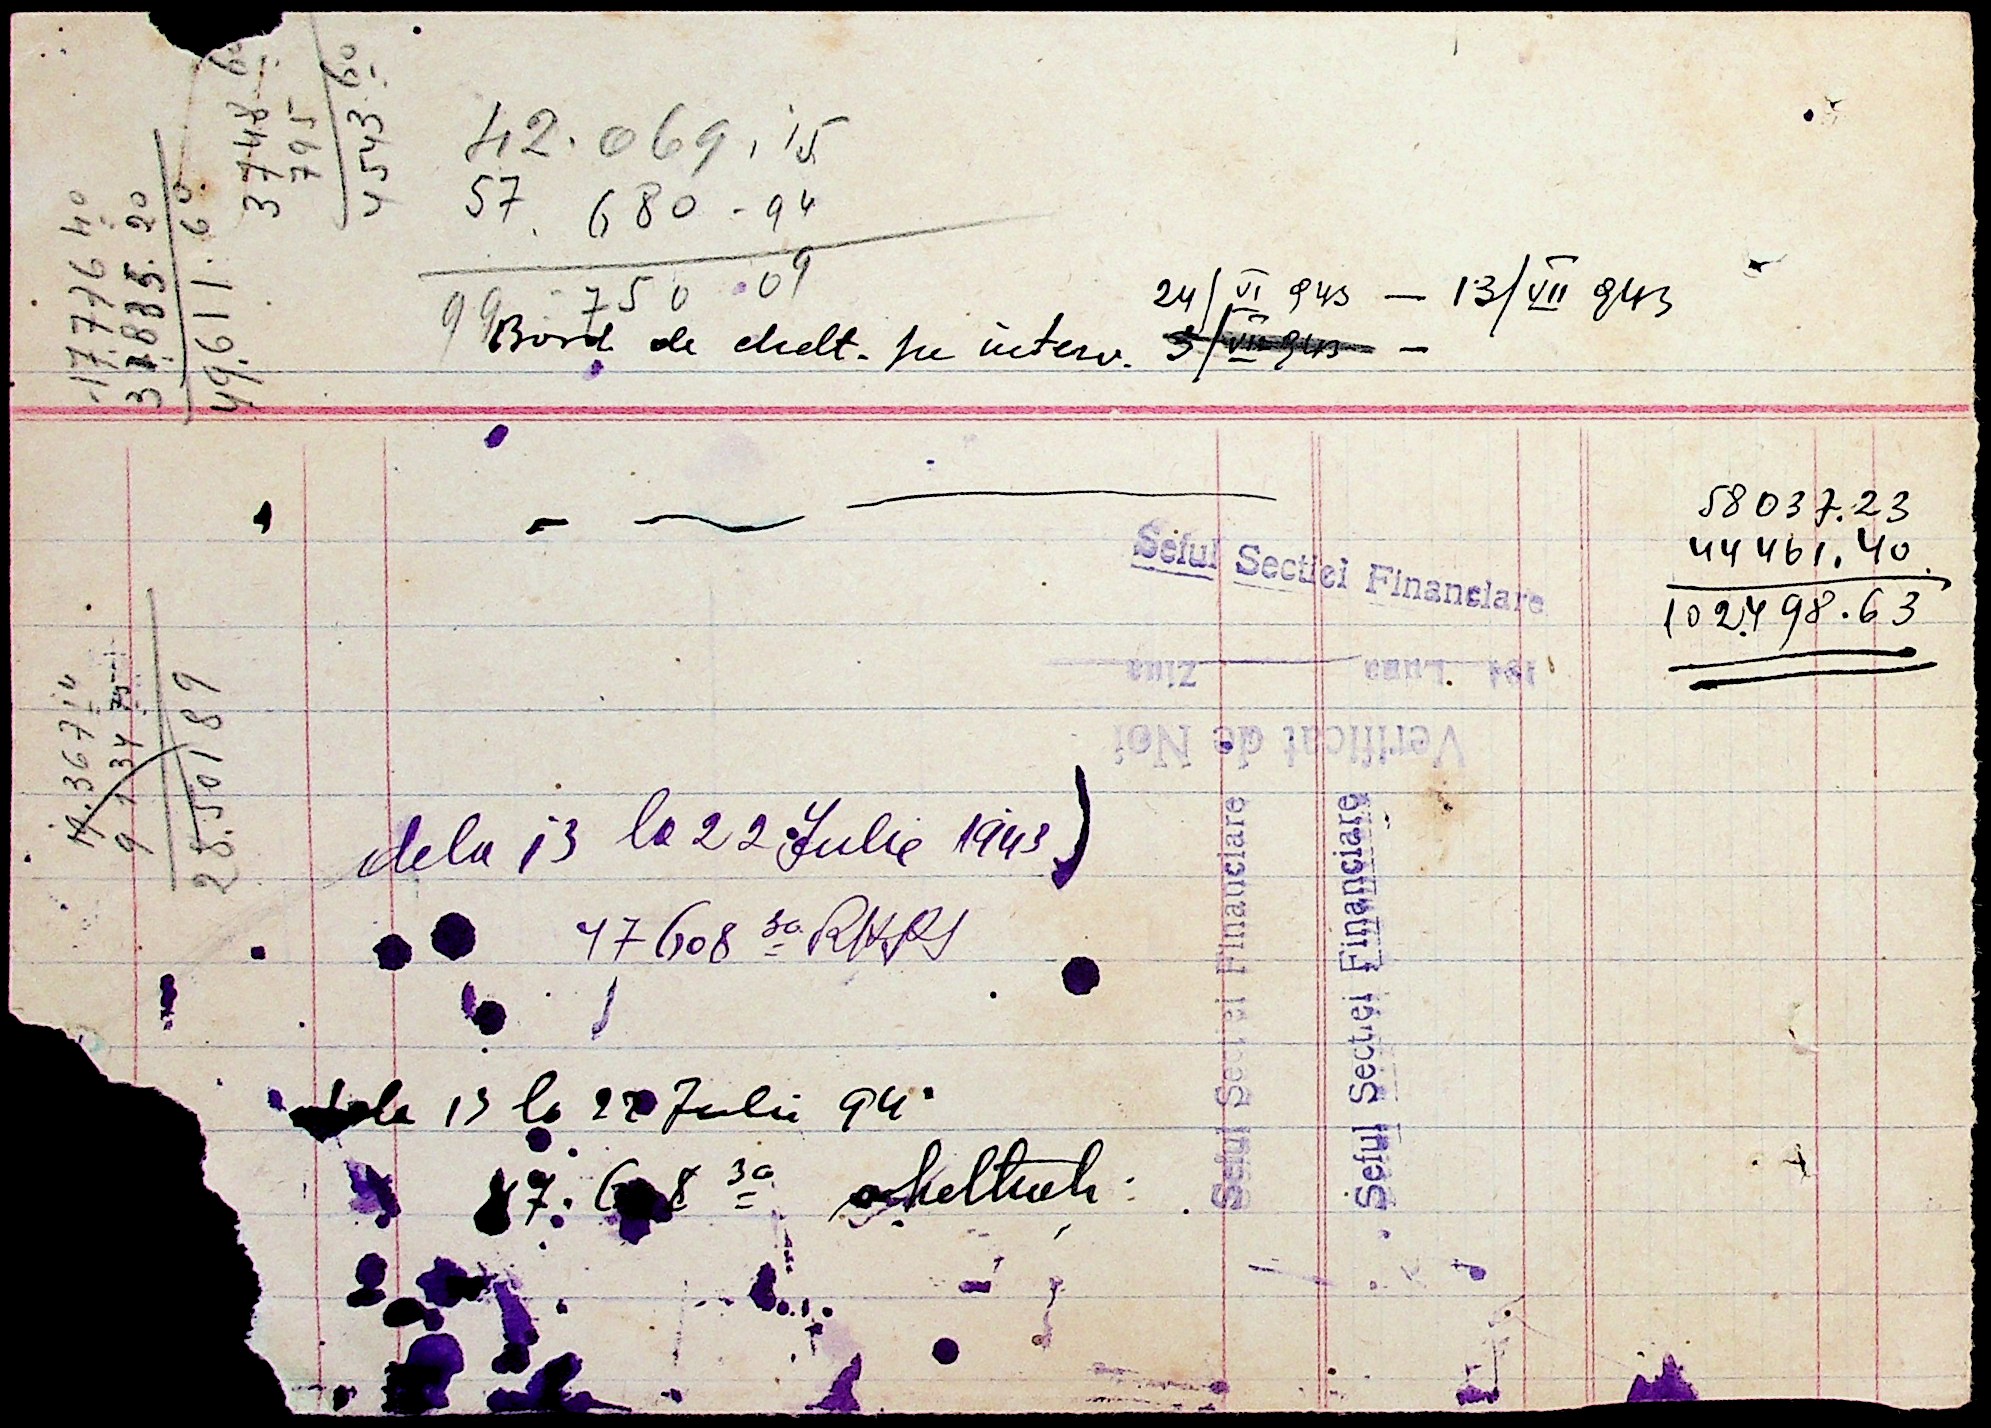 42.069,15
57.680-94
99.750.09
24/VI 943 — 13/VII 943
Bord de chelt. pe interv.
58037.23
44461.40
102.498.63
Seful Sectiei Financiare
194 Luna Ziua
Verificat de Noi
dela 13 la 22 Iulie 1943
47608 30
dela 13 la 22 Iulie 94
47.608 30
Seful Sectiei Financiare
Seful Sectiei Financiare
17.776 40
31.835.20
49.611.60
3748 60
795
4543.60
9 134 75
28.501 89